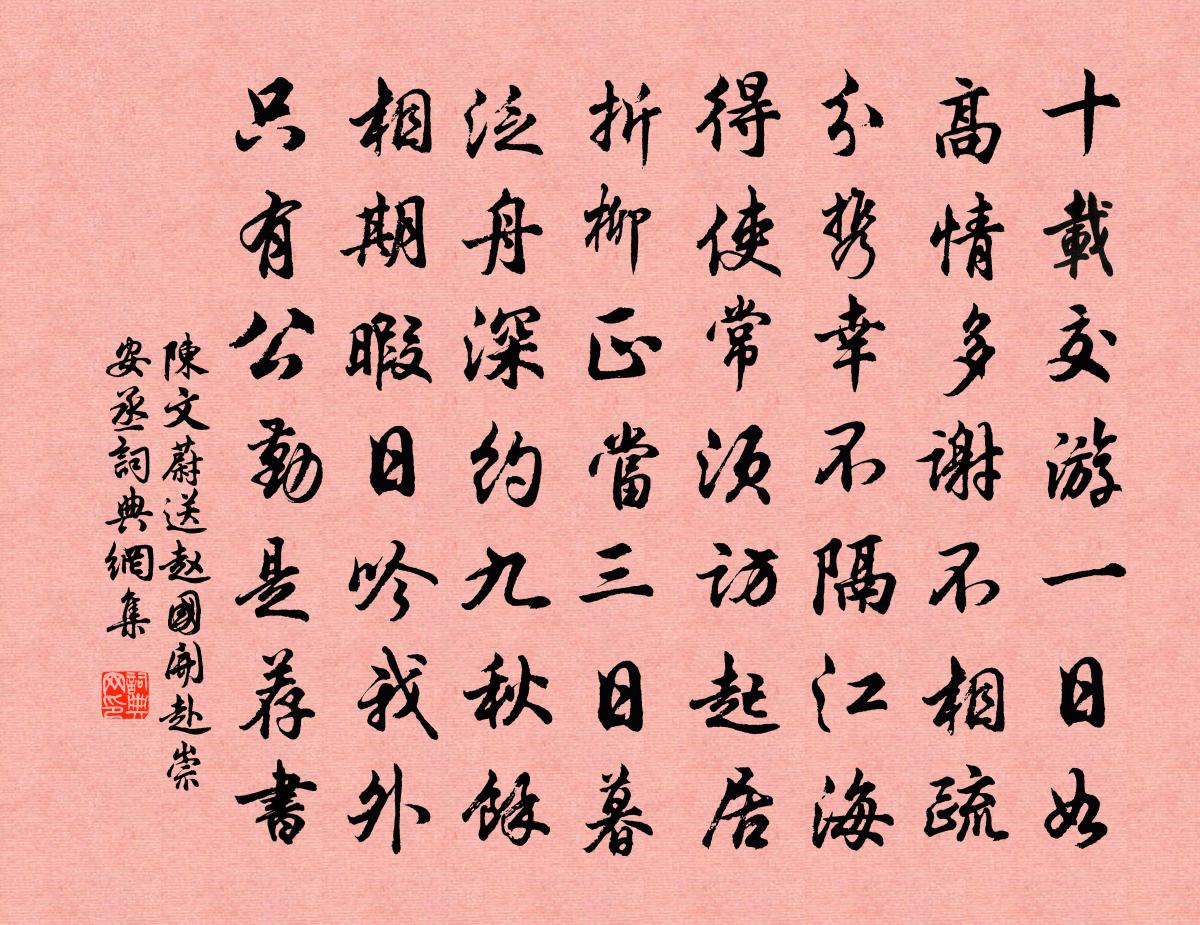 十載交游一日如
高情多謝不相疏
分携幸不隔江海
得使常須訪起居
折柳正當三日暮
泛舟深約九秋餘
相期暇日吟哦外
只有公勤是荐書
陳文蔚送赵國開赴崇
安丞詞典網集
詞典网印